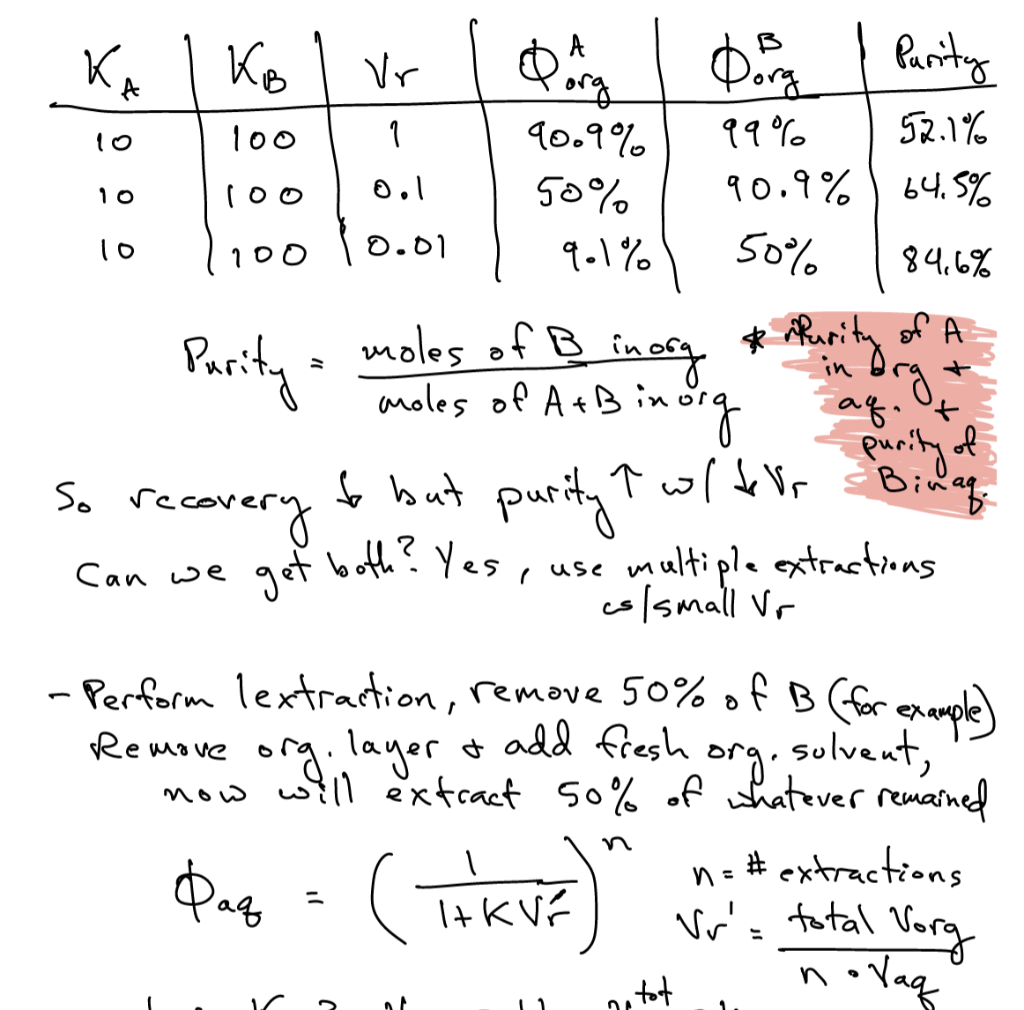 K_A | K_B | Vr | Φ_org^A | Φ_org^B | Purity
10 | 100 | 1 | 90.9% | 99% | 52.1%
10 | 100 | 0.1 | 50% | 90.9% | 64.5%
10 | 100 | 0.01 | 9.1% | 50% | 84.6%
Purity = moles of B in org / moles of A+B in org
* Purity of A
in org +
aq. +
purity of
B in aq.
So recovery ↓ but purity ↑ w/ ↓ Vr
Can we get both? Yes, use multiple extractions
w/ small Vr
- Perform 1 extraction, remove 50% of B (for example)
Remove org. layer & add fresh org. solvent,
now will extract 50% of whatever remained
Φ_aq = (1 / (1 + K Vr'))^n
n = # extractions
Vr' = total Vorg / n · Vaq
tot